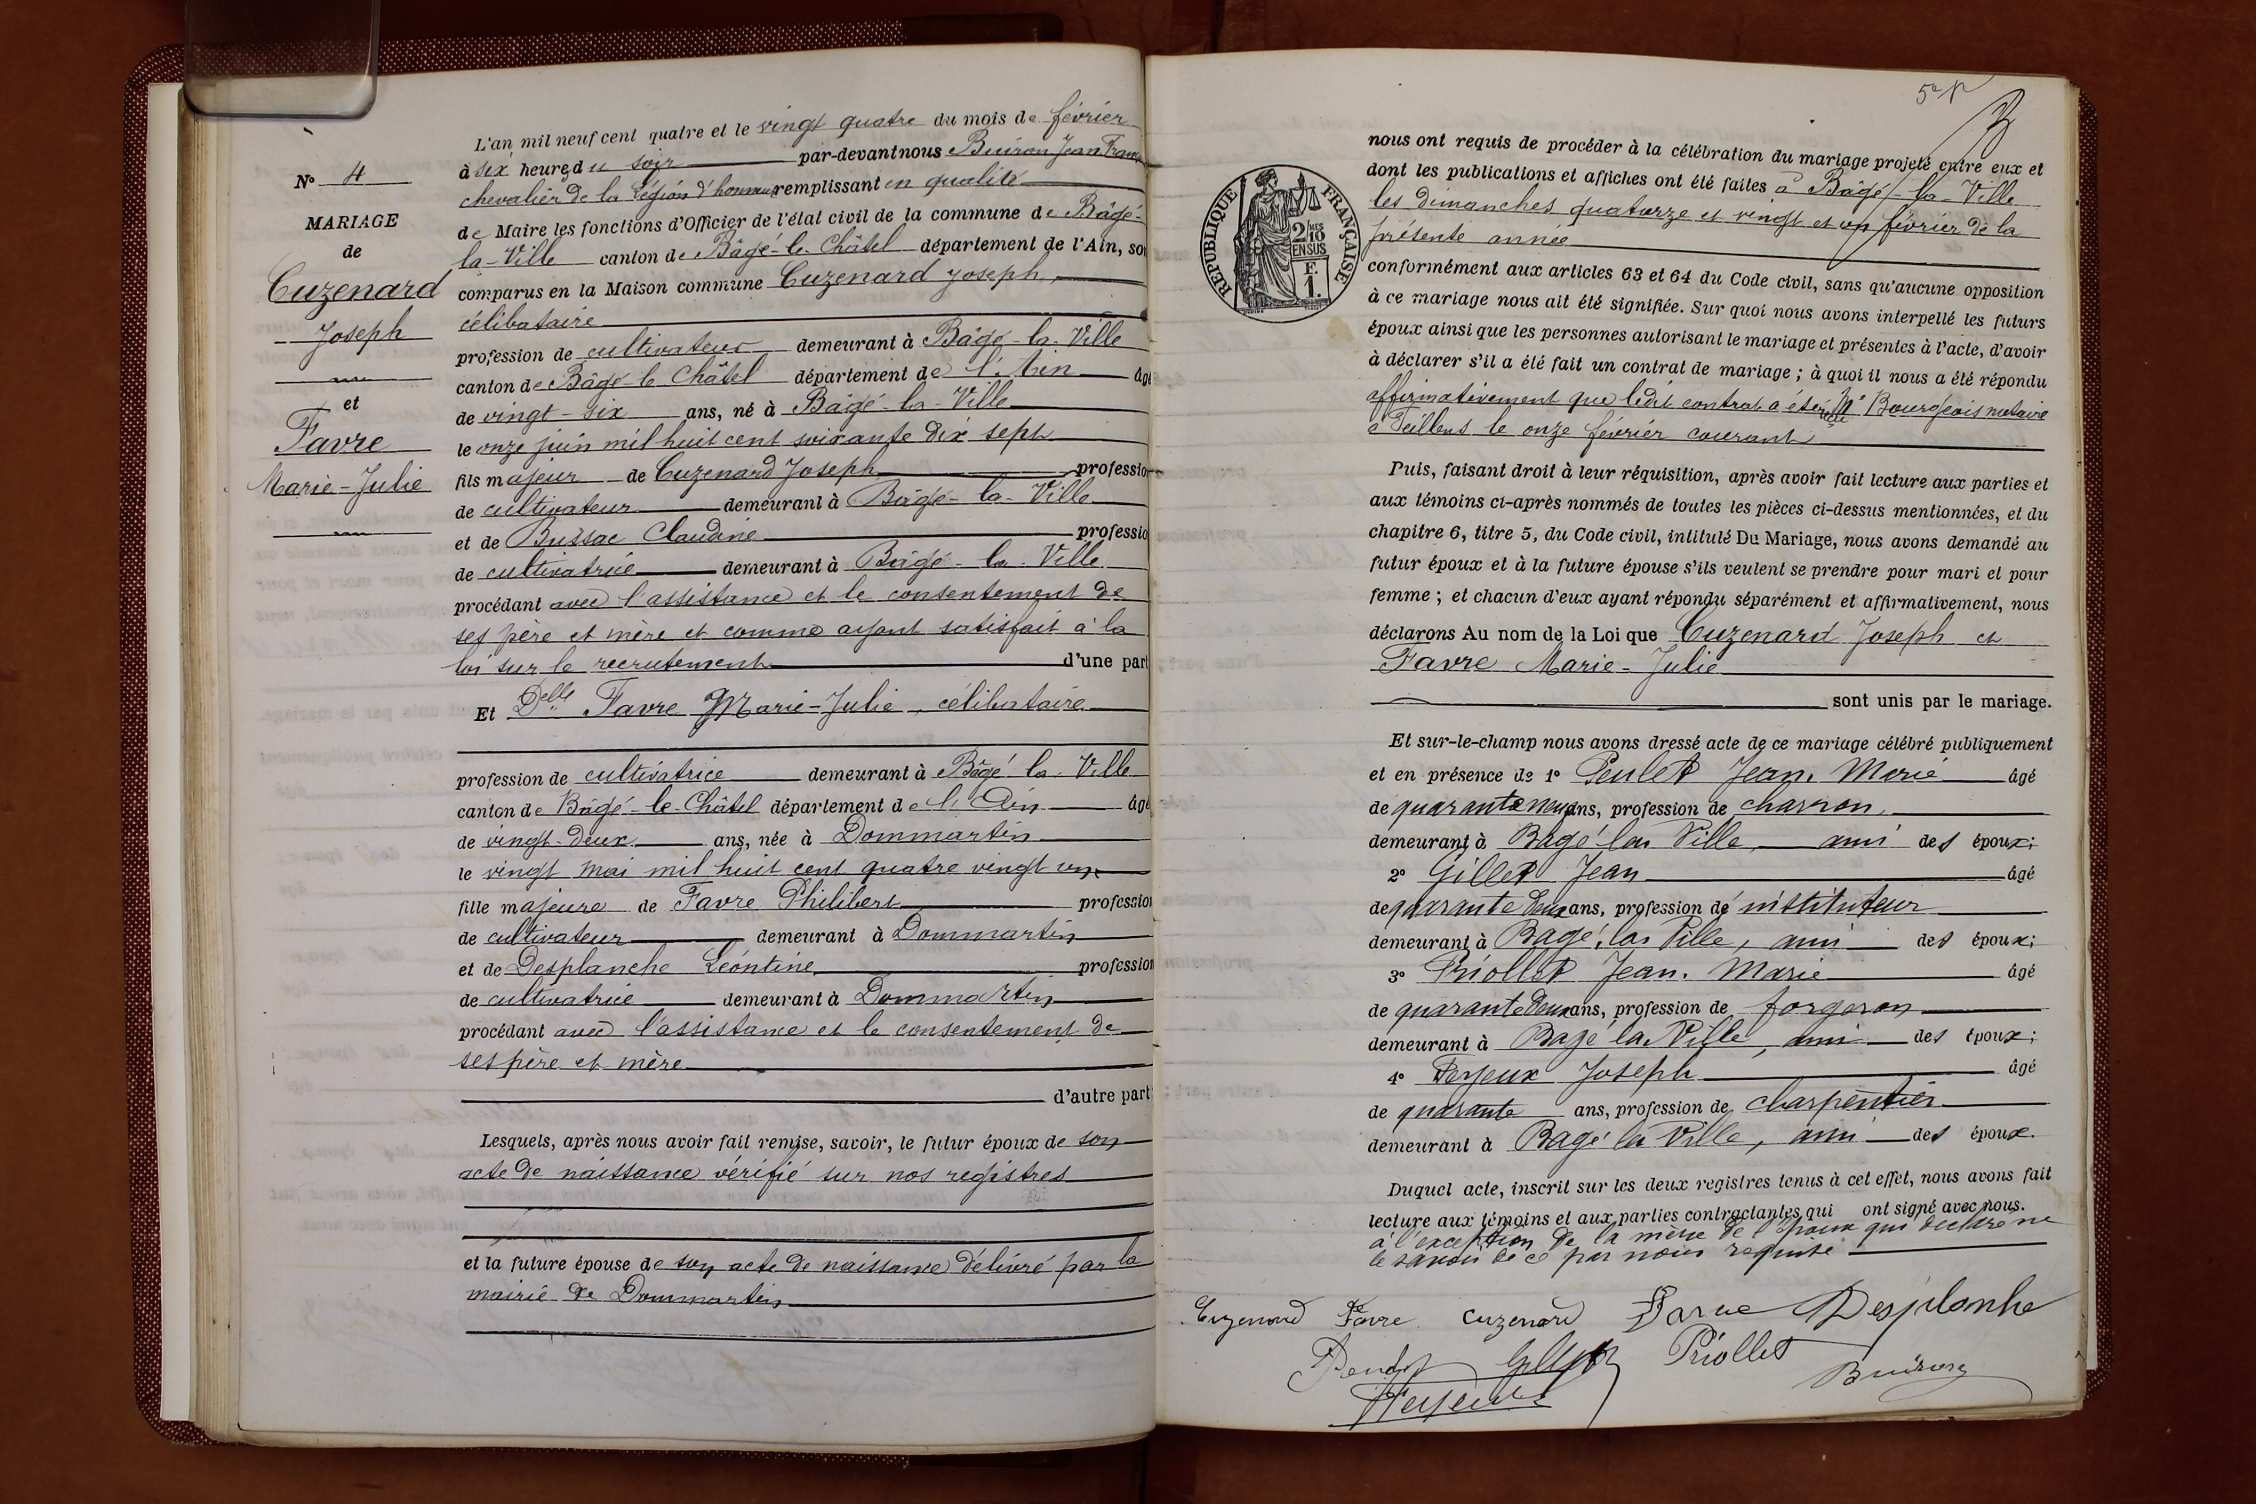 N° 4
MARIAGE
de
Cuzenard
Joseph
et
Favre
Marie-Julie
L'an mil neuf cent quatre et le vingt quatre du mois de février
à six heures du soir par-devant nous Buiron Jean Franç
chevalier de la Légion d'honneur remplissant en qualité
de Maire les fonctions d'Officier de l'état civil de la commune de Bâgé-
la-Ville canton de Bâgé-le-Châtel département de l'Ain, son
comparus en la Maison commune Cuzenard Joseph,
célibataire
profession de cultivateur demeurant à Bâgé-la-Ville
canton de Bâgé-le-Châtel département de l'Ain âgé
de vingt-six ans, né à Bâgé-la-Ville
le onze juin mil huit cent soixante dix sept
fils majeur de Cuzenard Joseph profession
de cultivateur demeurant à Bâgé-la-Ville
et de Bussac Claudine professio
de cultivatrice demeurant à Bâgé-la-Ville
procédant avec l'assistance et le consentement de
ses père et mère et comme ayant satisfait à la
loi sur le recrutement d'une part
Et Delle Favre Marie-Julie, célibataire
profession de cultivatrice demeurant à Bâgé-la-Ville
canton de Bâgé-le-Châtel département de l'Ain âgé
de vingt-deux ans, née à Dommartin
le vingt mai mil huit cent quatre vingt un
fille majeure de Favre Philibert profession
de cultivateur demeurant à Dommartin
et de Desplanche Léontine profession
de cultivatrice demeurant à Dommartin
procédant avec l'assistance et le consentement de
ses père et mère
d'autre part
Lesquels, après nous avoir fait remise, savoir, le futur époux de son
acte de naissance vérifié sur nos registres
et la future épouse de son acte de naissance délivré par la
mairie de Dommartin
RÉPUBLIQUE FRANÇAISE
2 MES 10
EN SUS
F.
1.
nous ont requis de procéder à la célébration du mariage projeté entre eux et
dont les publications et affiches ont été faites à Bâgé-la-Ville
les dimanches quatorze et vingt et un février de la
présente année
conformément aux articles 63 et 64 du Code civil, sans qu'aucune opposition
à ce mariage nous ait été signifiée. Sur quoi nous avons interpellé les futurs
époux ainsi que les personnes autorisant le mariage et présentes à l'acte, d'avoir
à déclarer s'il a été fait un contrat de mariage ; à quoi il nous a été répondu
affirmativement que ledit contrat a été reçu Me Bourgeois notaire
à Feillens le onze février courant
Puis, faisant droit à leur réquisition, après avoir fait lecture aux parties et
aux témoins ci-après nommés de toutes les pièces ci-dessus mentionnées, et du
chapitre 6, titre 5, du Code civil, intitulé Du Mariage, nous avons demandé au
futur époux et à la future épouse s'ils veulent se prendre pour mari et pour
femme ; et chacun d'eux ayant répondu séparément et affirmativement, nous
déclarons Au nom de la Loi que Cuzenard Joseph et
Favre Marie-Julie
sont unis par le mariage.
Et sur-le-champ nous avons dressé acte de ce mariage célébré publiquement
et en présence de 1° Jean-Marie âgé
de quarante neuf ans, profession de charron
demeurant à Bagé la Ville ami des époux;
2° Gillet Jean âgé
de quarante deux ans, profession de instituteur
demeurant à Bagé la Ville, ami des époux;
3° Priollet Jean-Marie âgé
de quarante deux ans, profession de forgeron
demeurant à Bagé la Ville, ami des époux;
4° Joseph âgé
de quarante ans, profession de charpentier
demeurant à Bagé la Ville, ami des époux.
Duquel acte, inscrit sur les deux registres tenus à cet effet, nous avons fait
lecture aux témoins et aux parties contractantes qui ont signé avec nous.
à l'exception de la mère de l'époux qui déclare ne
le savoir de ce par nous requise
Cuzenard Favre Cuzenard Favre Desplanche
Gillet Priollet Buiron